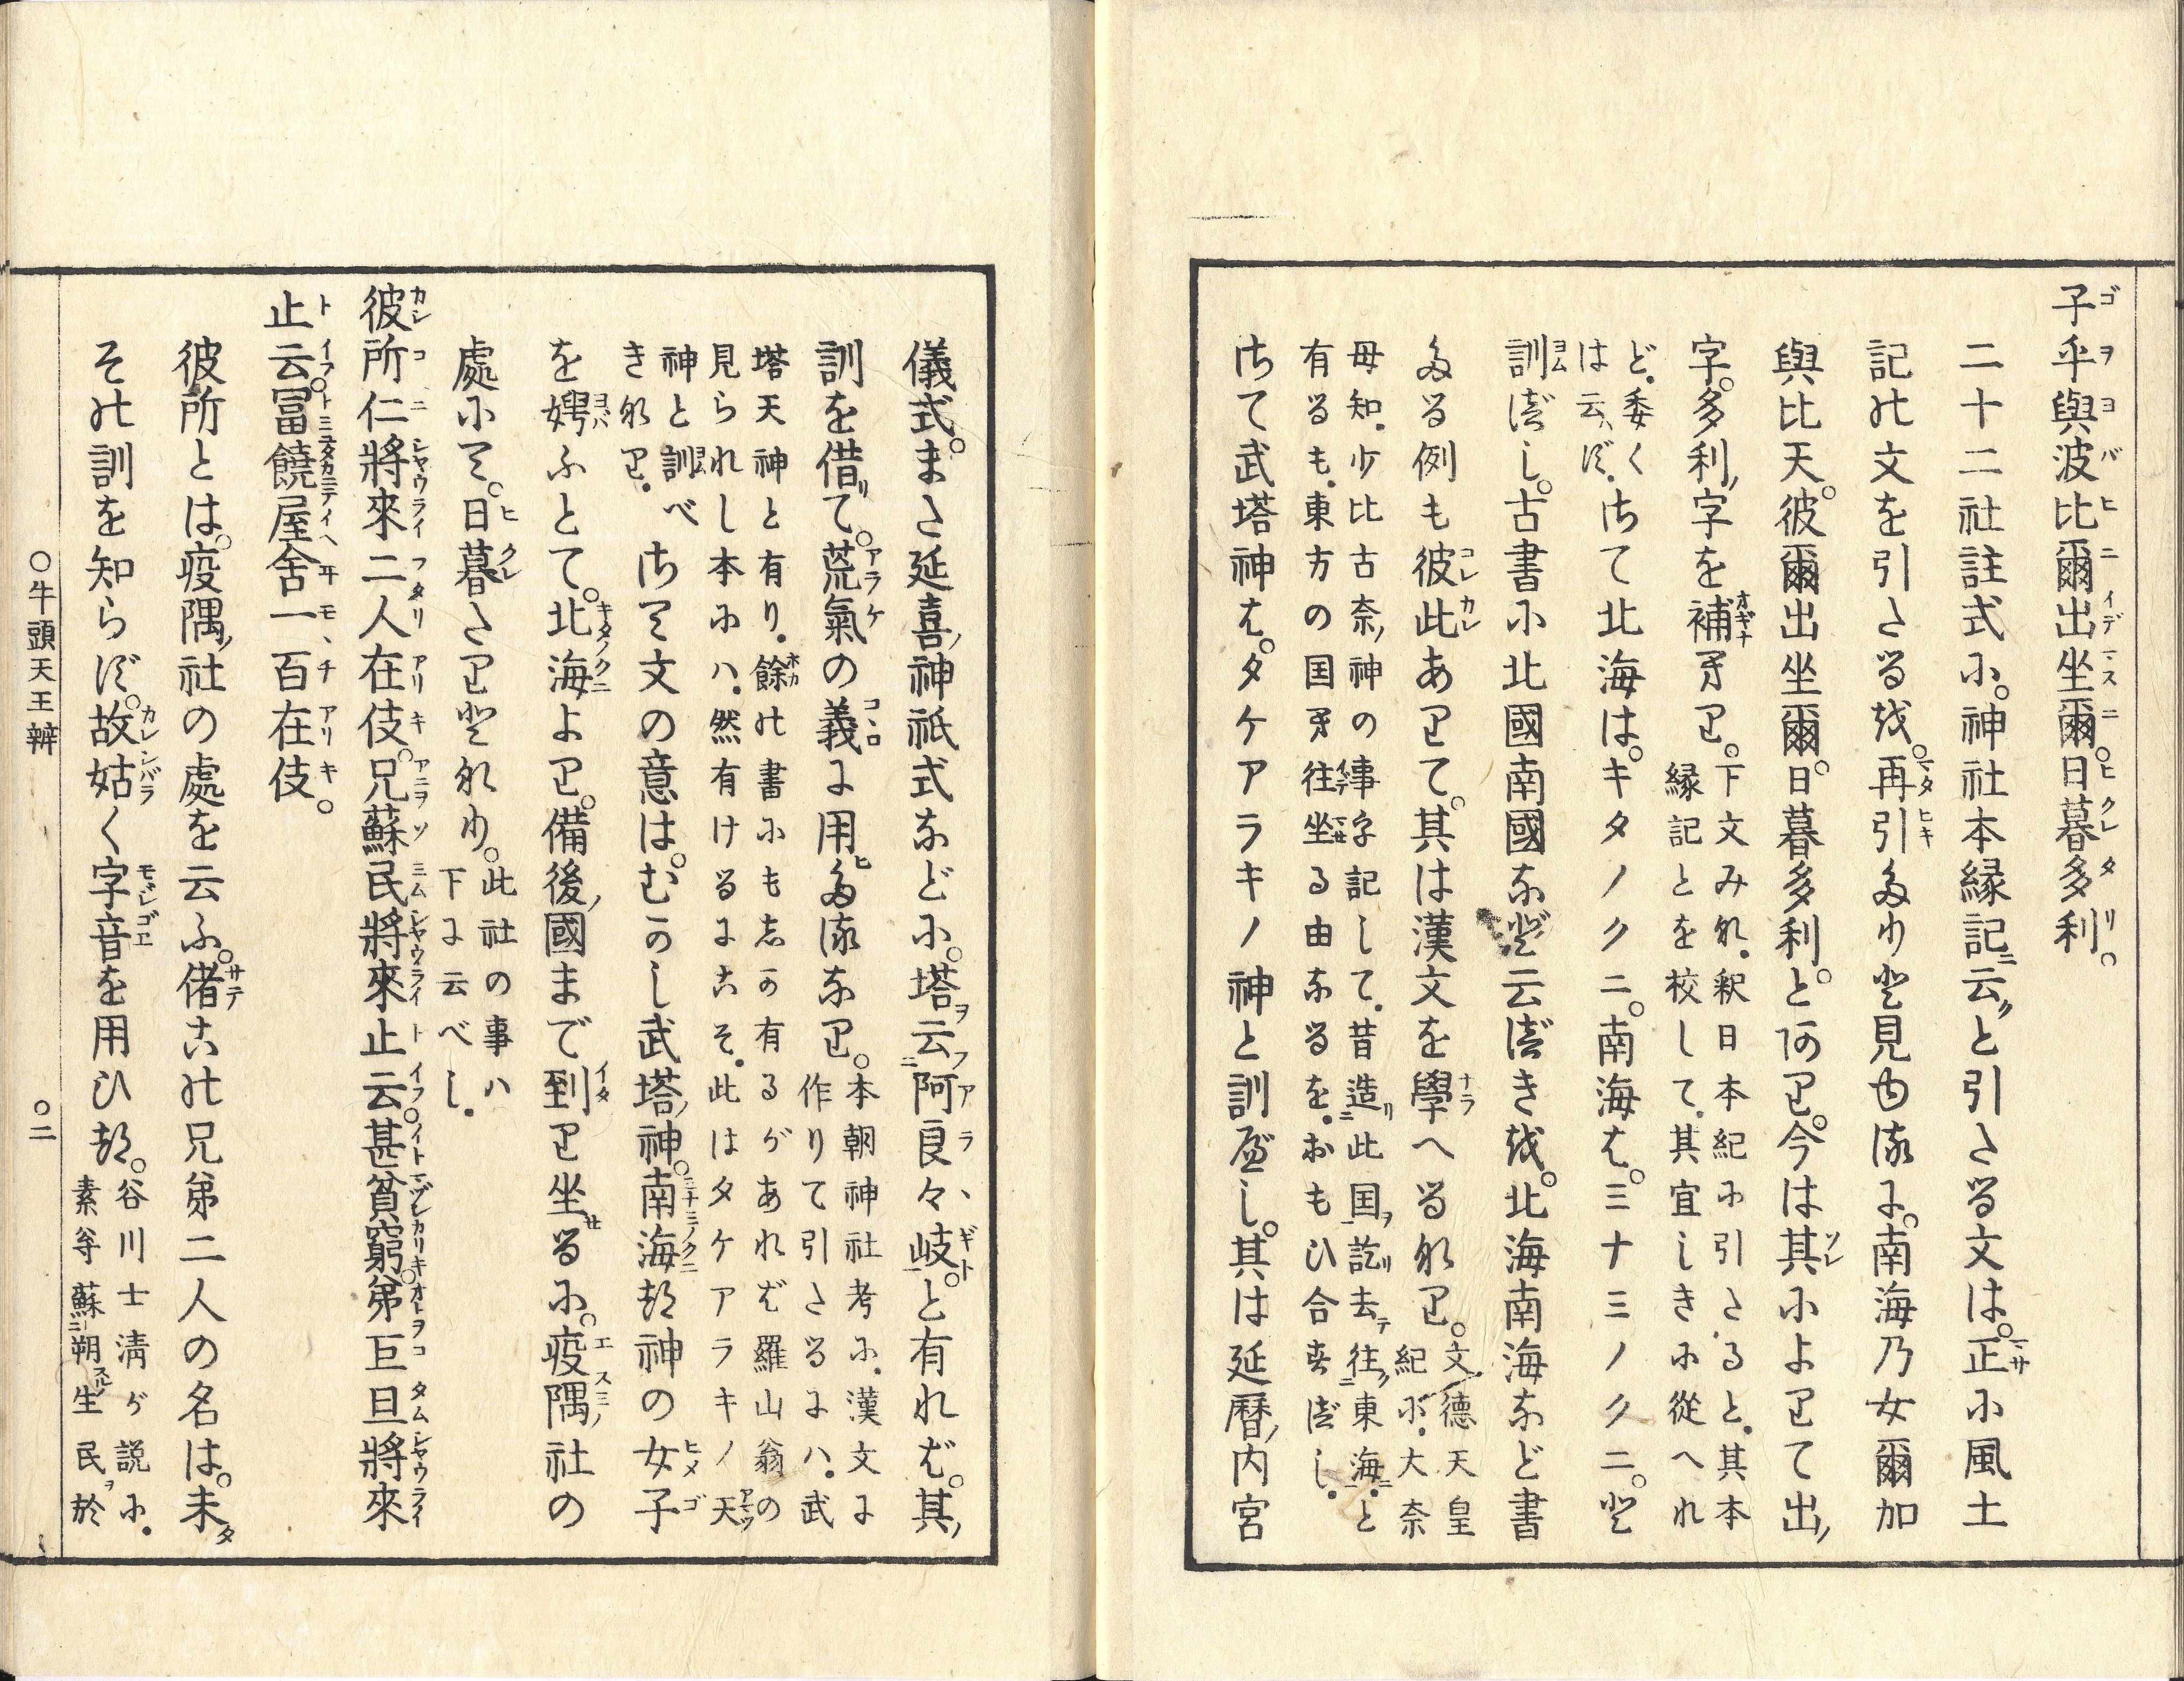 子乎與波比爾出坐爾。日暮多利。
二十二社註式に。神社本縁記云。と引たる文は。正に風土
記の文を引たる故。再引たりと見ゆるに。南海乃女爾加
與比天。彼爾出坐爾。日暮多利。と阿り。今は其によりて出
字。多利字を補ヘり。下文みな。釈日本紀に引たると。其本
縁記とを校して。其宜しきに從へれ
ど。委く
は云はず。さて北海は。キタノクニ。南海は。ミナミノクニ。と
訓べし。古書に北國南國など云べきを。北海南海など書
たる例も彼此ありて。其は漢文を學へるなり。文德天皇
紀に。大奈
母知。少比古奈神の事を記して。昔造此国訖去往東海。と
有るも。東方の国より往坐る由なるを。おもひ合すべし。
さて武塔神は。タケアラキノ神と訓べし。其は延暦内宮
儀式。また延喜神祇式などに。塔云阿良々岐。と有れば。其
訓を借て。荒氣の義に用ひたるなり。本朝神社考に。漢文に
作りて引たるには。武
塔天神と有り。餘の書にもしか有るがあれど羅山翁の
見られし本には。然有けるにこそ。此はタケアラキノ天
神と訓べ
きなり。さて文の意は。むかし武塔神。南海なる神の女子
を娉ふとて。北海より。備後國まで到り坐るに。疫隅社の
處にて。日暮たりとなり。此社の事ハ
下に云べし。
彼所仁將來二人在伎。兄蘇民將來止云。甚貧窮。弟巨旦將來
止云。冨饒屋舎一百在伎。
彼所とは。疫隅社の處を云ふ。偖この兄弟二人の名は。未
その訓を知らず。故姑く字音を用ひつ。谷川士清が説に。
素等蘇朔生民於
○牛頭天王辨
○二